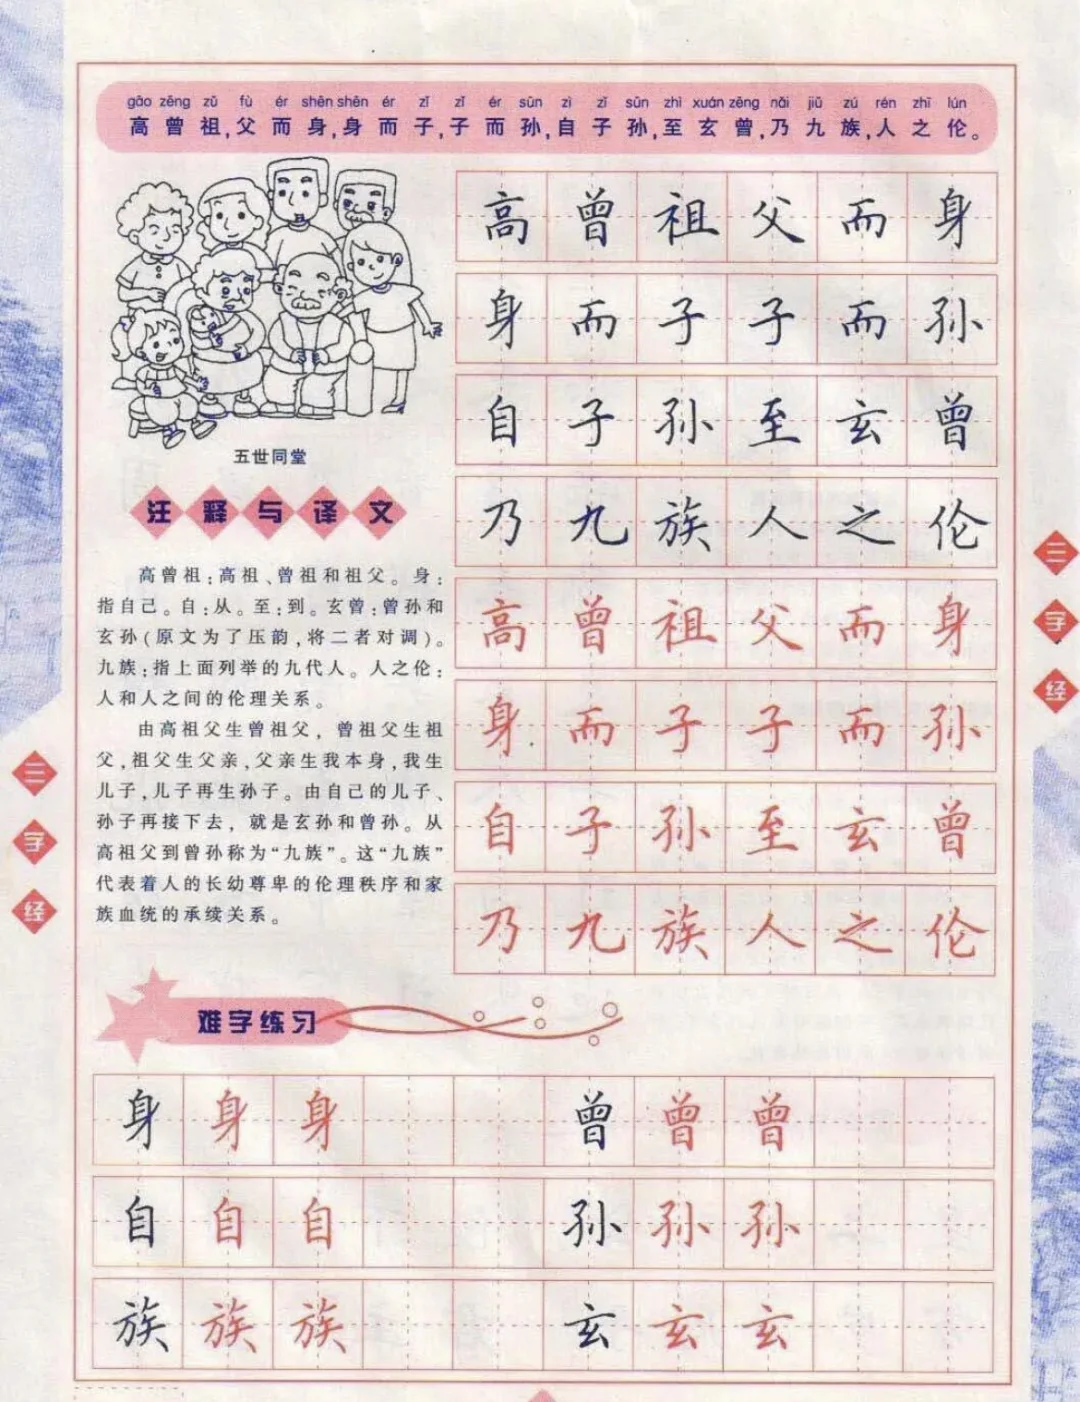 gāo zēng zǔ fù ér shēn shēn ér zǐ zǐ ér sūn zì zǐ sūn zhì xuán zēng nǎi jiǔ zú rén zhī lún
高曾祖,父而身,身而子,子而孙,自子孙,至玄曾,乃九族,人之伦。
五世同堂
注释与译文
高曾祗:高祖、曾祖和祖父。身:
指自己。自:从。至:到。玄曾:曾孙和
玄孙(原文为了压韵,将二者对调)。
九族:指上面列举的九代人。人之伦:
人和人之间的伦理关系。
由高祖父生曾祖父，曾祖父生祖
父,祖父生父亲,父亲生我本身,我生
儿子,儿子再生孙子。由自己的儿子、
孙子再接下去，就是玄孙和曾孙。从
高祖父到曾孙称为“九族”。这“九族”
代表着人的长幼尊卑的伦理秩序和家
族血统的承续关系。
高曾祖父而身
身而子子而孙
自子孙至玄曾
乃九族人之伦
高曾祖父而身
身而子子而孙
自子孙至玄曾
乃九族人之伦
难字练习
身身身 曾曾曾
自自自 孙孙孙
族族族 玄玄玄
三字经
三字经